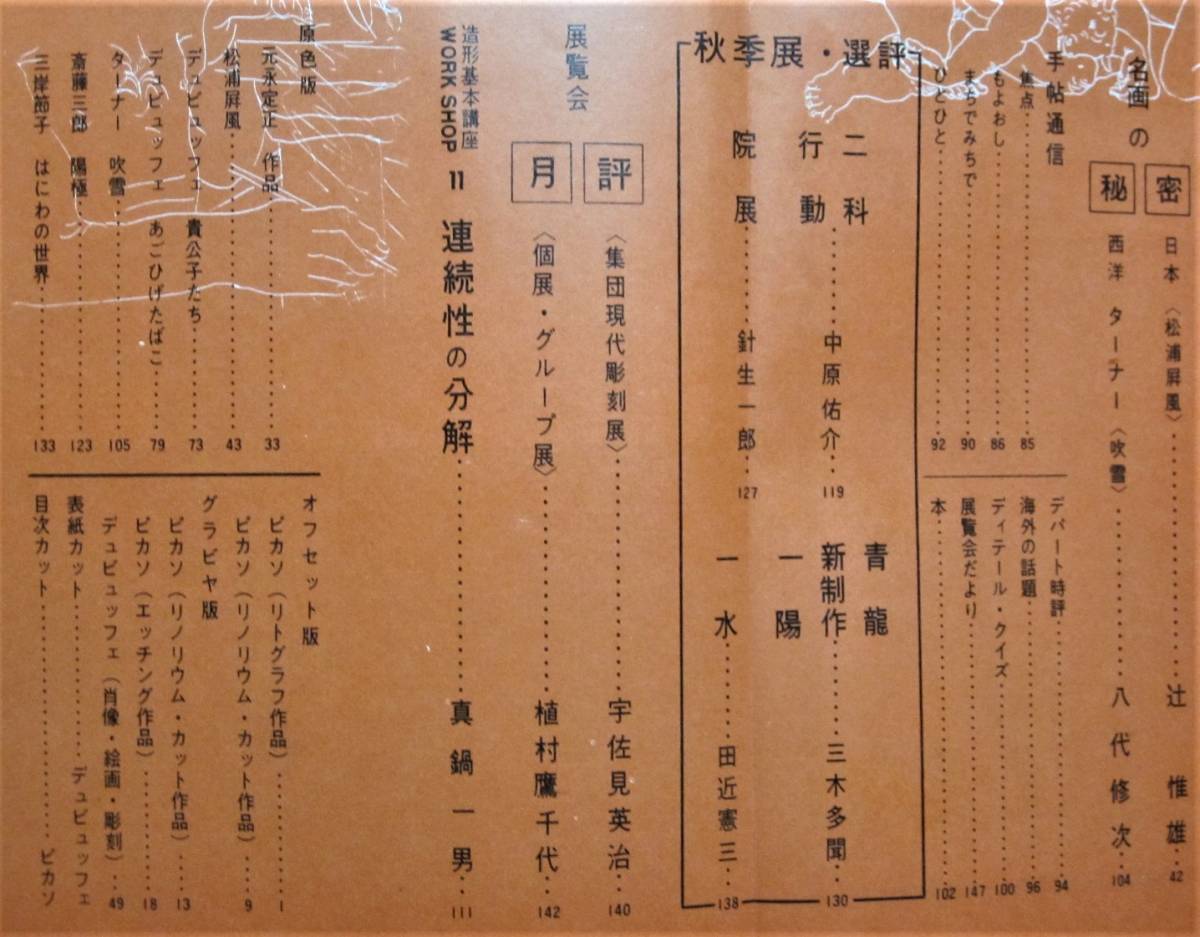 名画の秘密
日本〈松浦屛風〉……辻惟雄…42
西洋 ターナー〈吹雪〉……八代修次…104
手帖通信
焦点……85
もよおし……86
まちでみちで……90
ひとひと……92
デパート時評……94
海外の話題……96
ディテール・クイズ……100
展覧会だより……147
本……102
秋季展・選評
二科
行動……中原佑介…119
院展……針生一郎…127
青龍
新制作……三木多聞…130
一陽
一水……田近憲三…138
展覧会
月評
〈集団現代彫刻展〉……宇佐見英治…140
〈個展・グループ展〉……植村鷹千代…142
造形基本講座
WORK SHOP 11 連続性の分解……真鍋一男…111
原色版
元永定正 作品……33
松浦屛風……43
デュビュッフェ 貴公子たち……73
デュビュッフェ あごひげたばこ……79
ターナー 吹雪……105
斎藤三郎 陽極……123
三岸節子 はにわの世界……133
オフセット版
ピカソ（リトグラフ作品）……1
ピカソ（リノリウム・カット作品）…9
グラビヤ版
ピカソ（リノリウム・カット作品）…13
ピカソ（エッチング作品）……18
デュビュッフェ（肖像・絵画・彫刻）…49
表紙カット……デュビュッフェ
目次カット……ピカソ